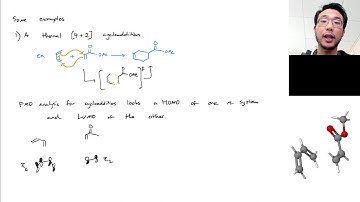 Some examples
1) A thermal [4+2] cycloaddition
ex.
+
O
OMe
O
OMe
O
OMe
‡
FMO analysis for cycloaddition looks a HOMO of one π system
and LUMO of the other.
O